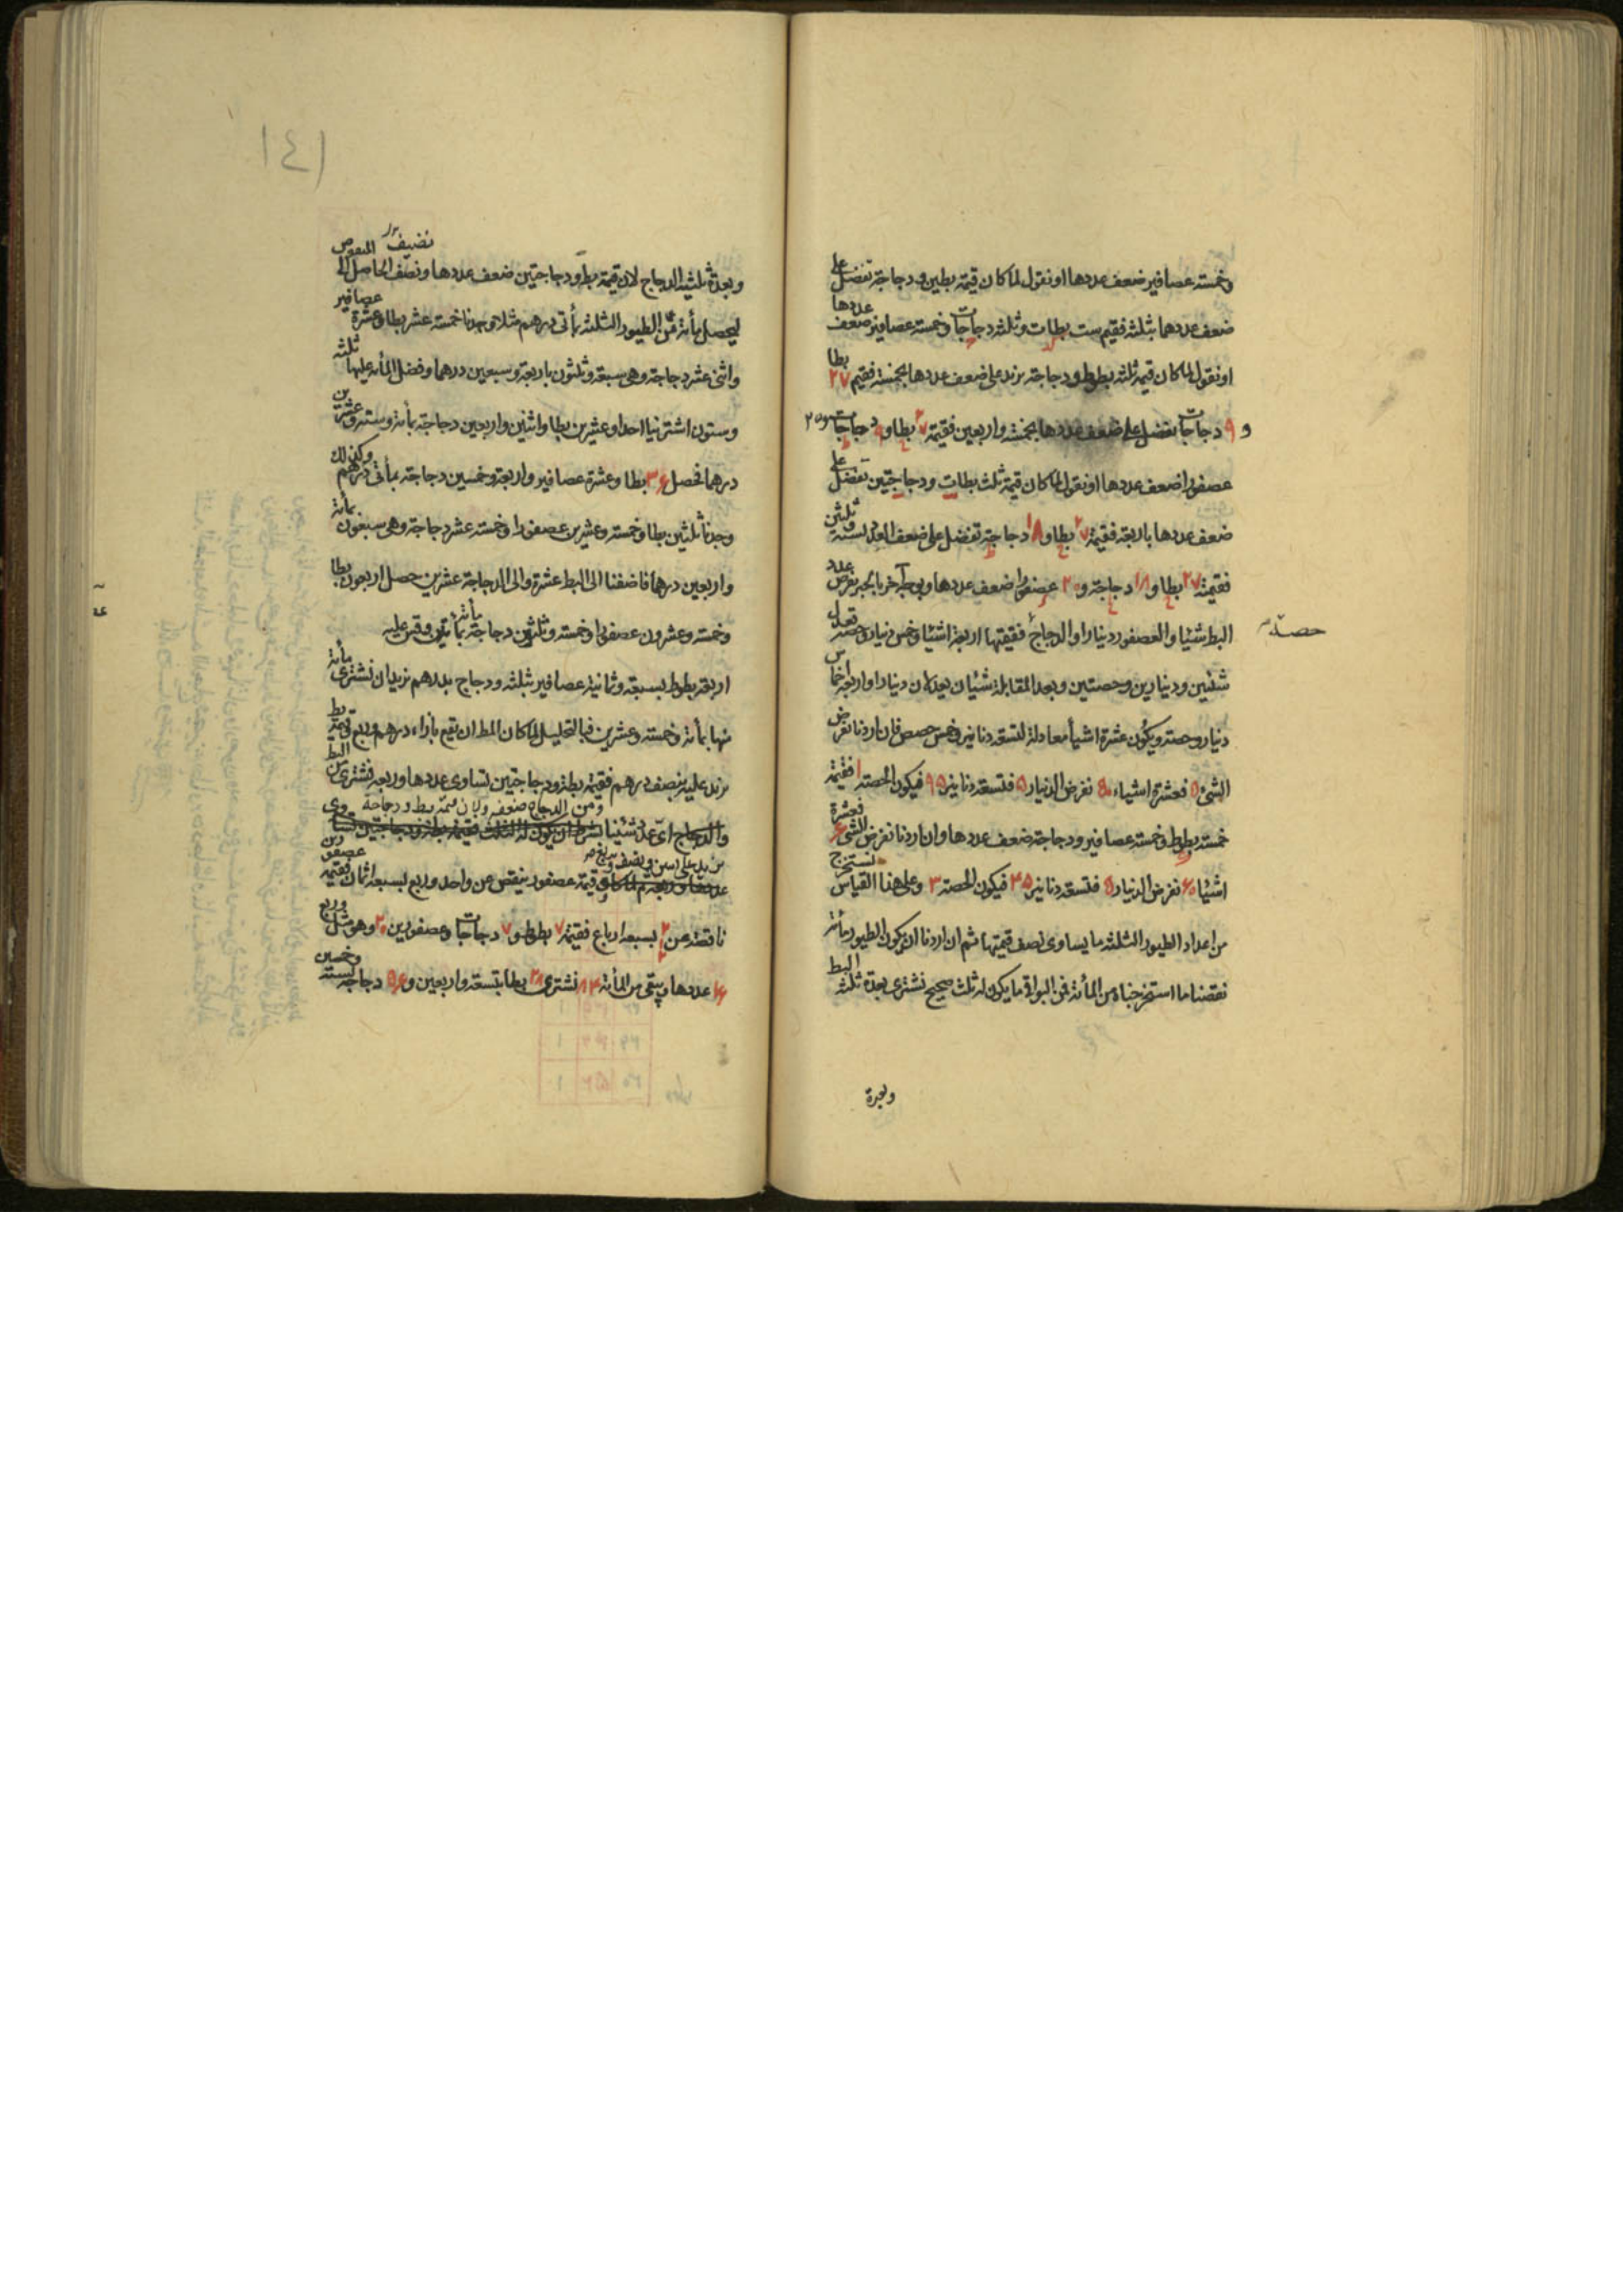 وخمسة عصافير ضعف عددها او نقول لما كان قيمة بطين ودجاجة تفضل على
ضعف عددهما بثلثه فقيم ست بطات وثلثه دجاجات وخمسة عصافير ضعف عددها
او نقول لما كان قيمة ثلثه بطوط ودجاجة يزيد على ضعف عددها بخمسة فقيم ٢٧ بطا
و ٩ دجاجات تفضل على ضعف عددها بخمسة واربعين فقيمة ٢٧ بطا و ٩ دجاجات و ٢٥
عصفورا ضعف عددها او نقول لما كان قيمة ثلث بطات ودجاجتين تفضل على
ضعف عددها باربعة فقيمة ٢٧ بطا و ١٨ دجاجة تفضل على ضعف العدد بستة وثلثين
فقيمة ٢٧ بطا و ١٨ دجاجة و ٢٠ عصفورا ضعف عددها وبوجه آخر بالجبر نفرض عدد
البط شيئا والعصفور دينارا والدجاج فقيمتها اربعة اشيا وخمس دينار وحصة تعدل
حصة
شيئين ودينارين وحصتين وبعد المقابلة شيئان يعدلان دينارا واربعة اخماس
دينار وحصة ويكون عشرة اشيا معادلة لتسعة دنانير وخمس حصص فان اردنا نفرض
الشئ ٥ فعشرة اشياء ٥٠ نفرض الدينار ٥ فتسعة دنانير ٤٥ فيكون الحصة ١ فقيمة
خمسة بطوط وخمسة عصافير ودجاجة ضعف عددها وان اردنا نفرض الشئ ٦ فعشرة
اشيا ٦٠ نفرض الدينار ٥ فتسعة دنانير ٤٥ فيكون الحصة ٣ وعلى هذا القياس نستخرج
من اعداد الطيور الثلثه ما يساوى نصف قيمتها ثم ان اردنا ان يكون الطيور مأة
نقصنا ما استخرجناه من المأة فمن البواقى ما يكون له ثلث صحيح نشترى بعدة ثلثه البط
وبعدة
١٤١
وبعدة ثلثيه الدجاج لان قيمة بط ودجاجتين ضعف عددها ونضيف الحاصل الى المنقوص
ليحصل مأة من الطيور الثلثه بمأتى درهم مثلا وجدنا خمسة عشر بطا وعشرة عصافير
واثنى عشر دجاجة وهى سبعة وثلثون باربعة وسبعين درهما وفضل المأة عليها ثلثه
وستون اشترنيا احدا وعشرين بطا واثنين واربعين دجاجة بمأة وستة وعشرين
درهما فحصل ٣٦ بطا وعشرة عصافير واربعة وخمسين دجاجة بمأتى درهم وكذلك
وجدنا ثلثين بطا وخمسة وعشرين عصفورا وخمسة عشر دجاجة وهى سبعون بمأة
واربعين درهما فاضفنا الى البط عشرة والى الدجاجة عشرين حصل اربعون بطا
وخمسة وعشرون عصفورا وخمسة وثلثين دجاجة مأة بمأتين وقس عليه
اربعة بطوط بسبعة وثمانية عصافير بثلثه ودجاج بدرهم نريد ان نشترى مأة
منها بمأة وخمسة وعشرين فبالتحليل لما كان المط ان يقع بازاء درهم وربع
يزيد عليه بنصف درهم فقيمة بطة ودجاجتين تساوى عددها وربعه فنشترى من البط
ومن الدجاج ضعفه ولان قيمة بط ودجاجة
قيمة عصفور ينقص عن واحد وربع بسبعة اثمان فقيمة عصفورين
ناقصة عن ٢ بسبعة ارباع فقيمة ٧ بطوط و ٧ دجاجات وعصفورين ٢٠ وهو مثل وربع
١٦ عددها ويبقى من المأة ٨٤ نشترى ٢٨ بطا بتسعة واربعين و ٥٦ دجاجة بستة وخمسين